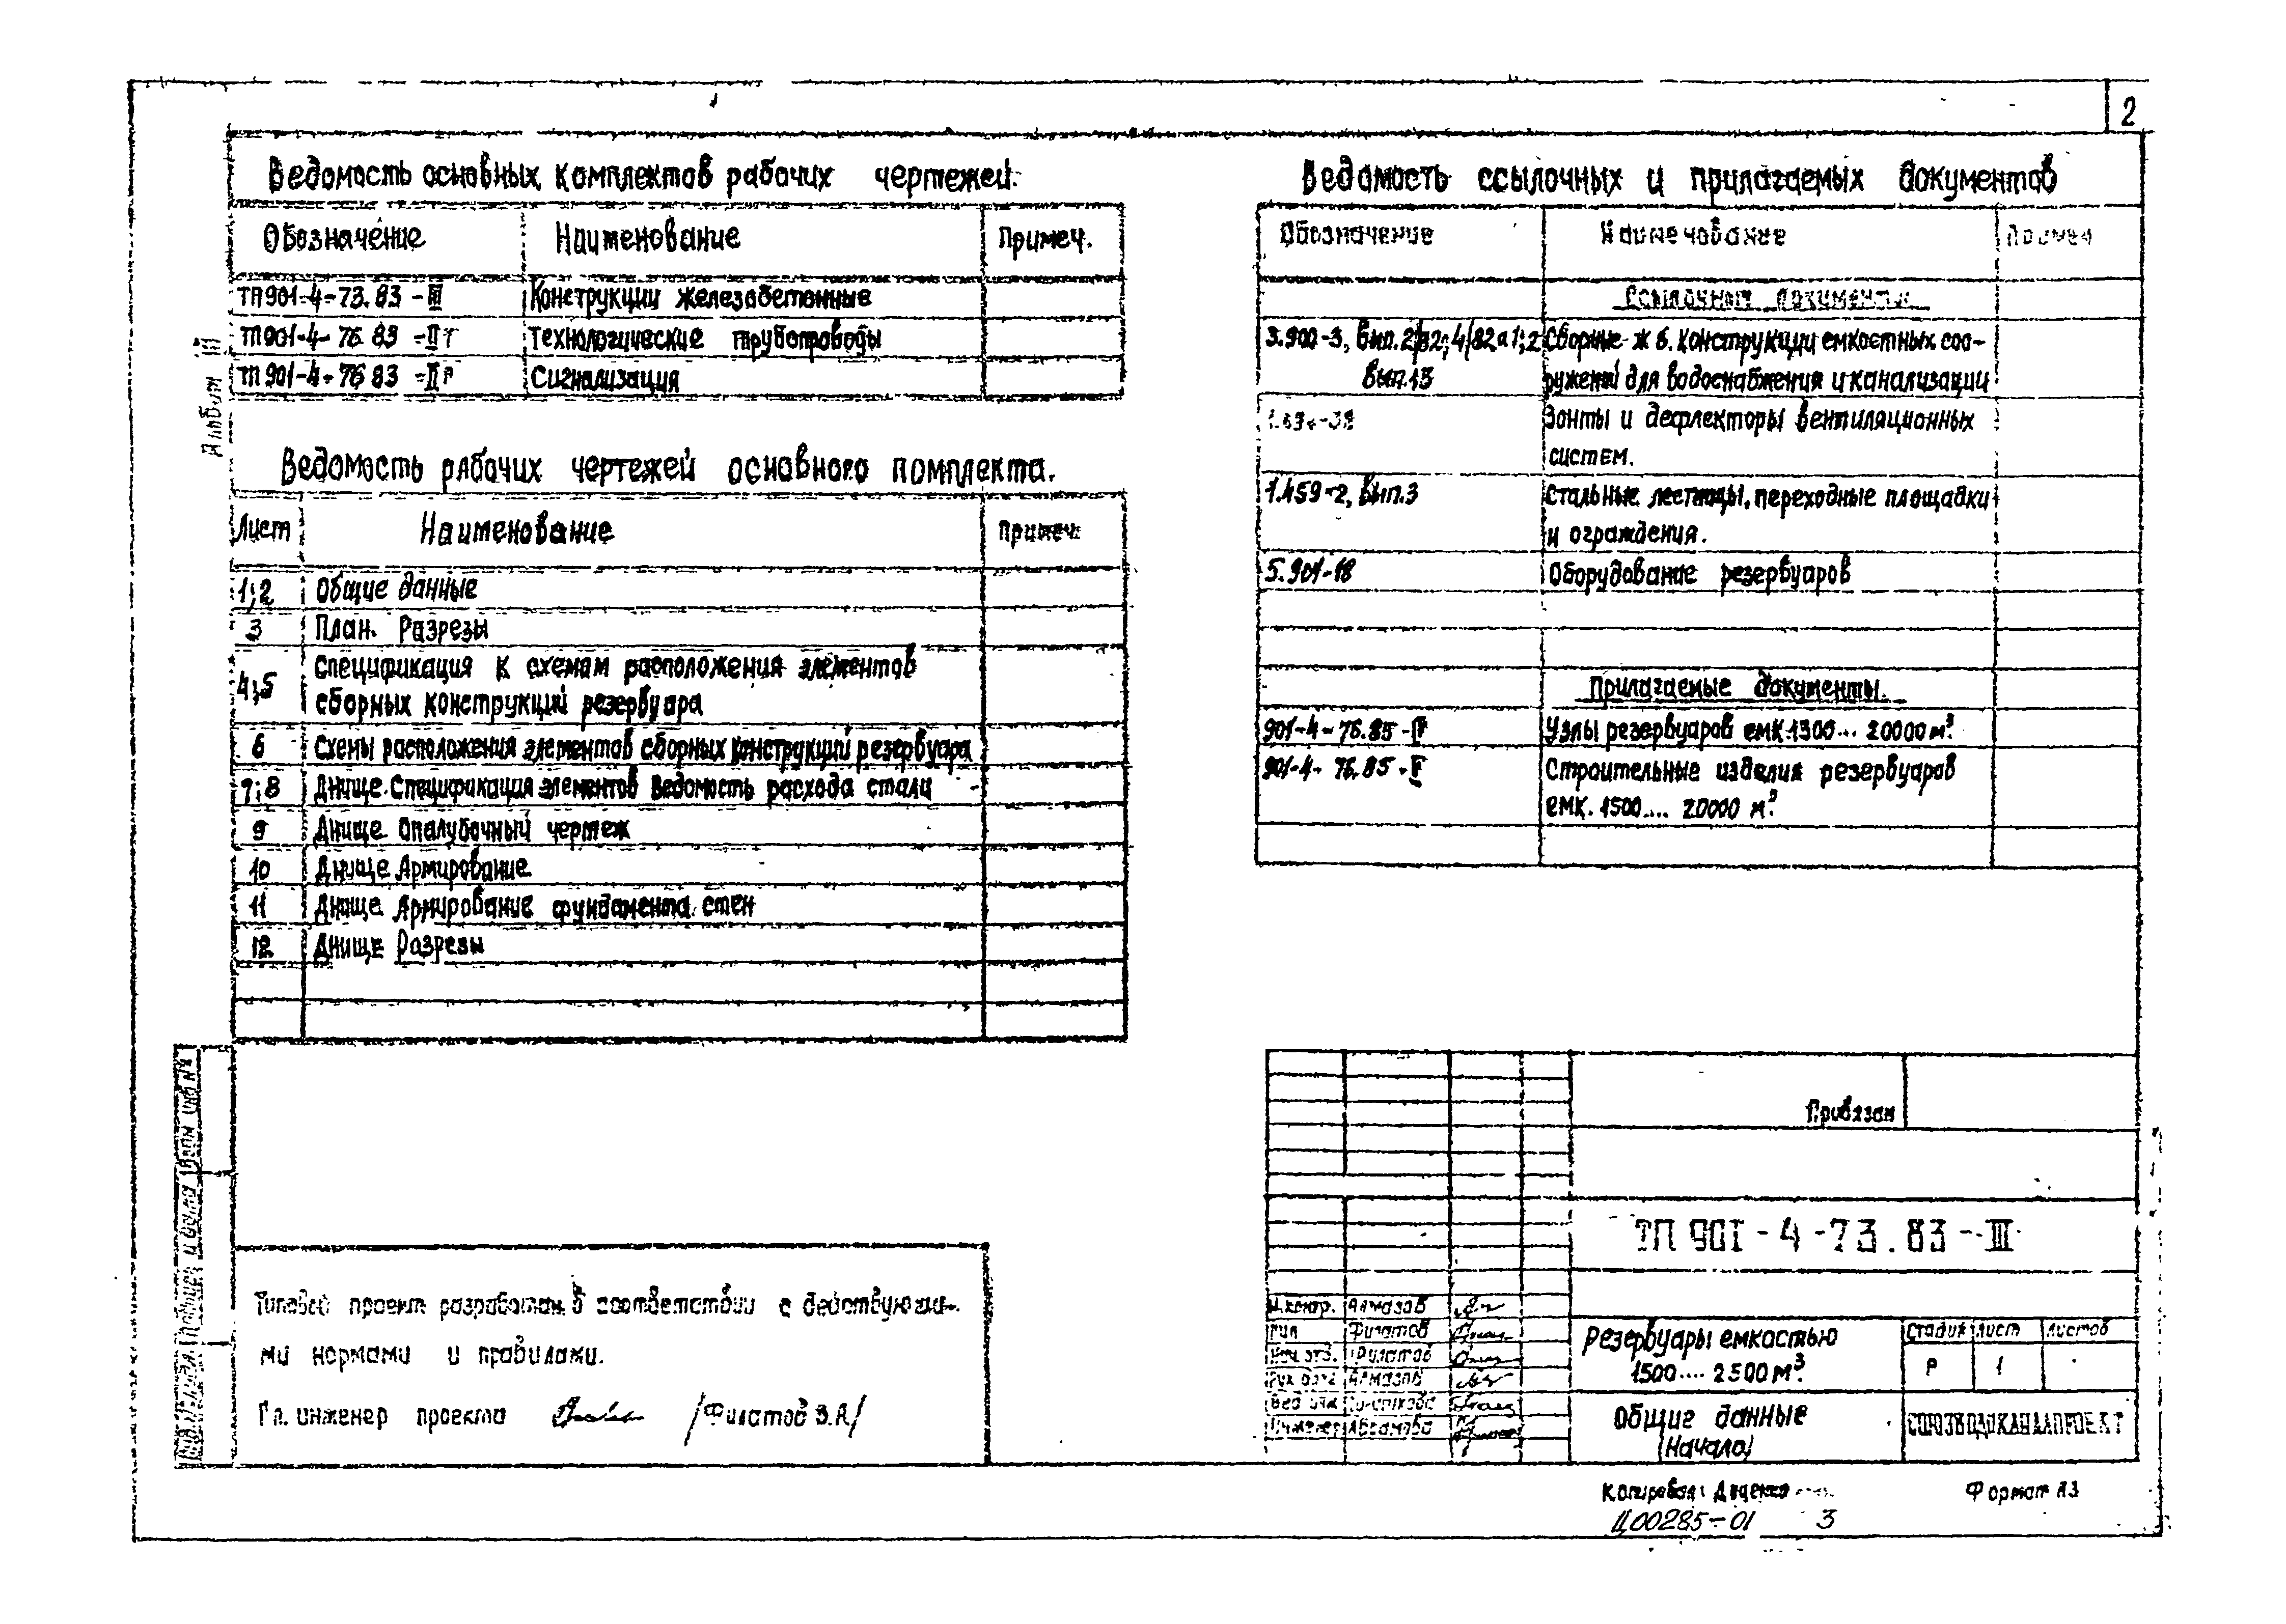 2
Альбом III
Ведомость основных комплектов рабочих чертежей.
Обозначение Наименование Примеч.
ТП901-4-73.83-III Конструкции железобетонные
ТП901-4-76.83 Технологические трубопроводы
ТП901-4-76 83 Сигнализация
Ведомость рабочих чертежей основного помплекта.
Лист Наименование Примеч.
1;2 Общие данные
3 План. Разрезы
4;5 Спецификация к схемам расположения элементов
сборных конструкций резервуара
6 Схемы расположения элементов сборных конструкций резервуара
7;8 Днище. Спецификация элементов Ведомость расхода стали
9 Днище Опалубочный чертеж
10 Днище Армирование
11 Днище Армирование фундамента стен
12 Днище Разрезы
Типовой проект разработан в соответствии с действующи-
ми нормами и правилами.
Гл. инженер проекта /Филатов В.А/
Ведомость ссылочных и прилагаемых документов
Обозначение Наименование Примеч
Ссылочные документы
3.900-3, Вып. 2/82; 4/82 Сборные ж б. конструкции емкостных соо-
вып.15 ружений для водоснабжения и канализации
Зонты и дефлекторы вентиляционных
систем.
1.459-2, вып.3 Стальные лестницы, переходные площадки
и ограждения.
5.901-18 Оборудование резервуаров
Прилагаемые документы.
901-4-76.85- Узлы резервуаров емк.1500... 20000 м³.
901-4-76.85- Строительные изделия резервуаров
емк. 1500.... 20000 м³.
Привязан
ТП 901-4-73.83-III
Н.контр. Алмазов
ГИП Филатов
Нач отд. Филатов
Алмазов
Вед инж
Инженер Абрамова
Резервуары емкостью
1500.... 2500 м³.
Стадия Лист Листов
Р 1
Общие данные
(Начало)
СОЮЗВОДОКАНАЛПРОЕКТ
Копировал: Доценко Формат А3
Ц00285-01 3